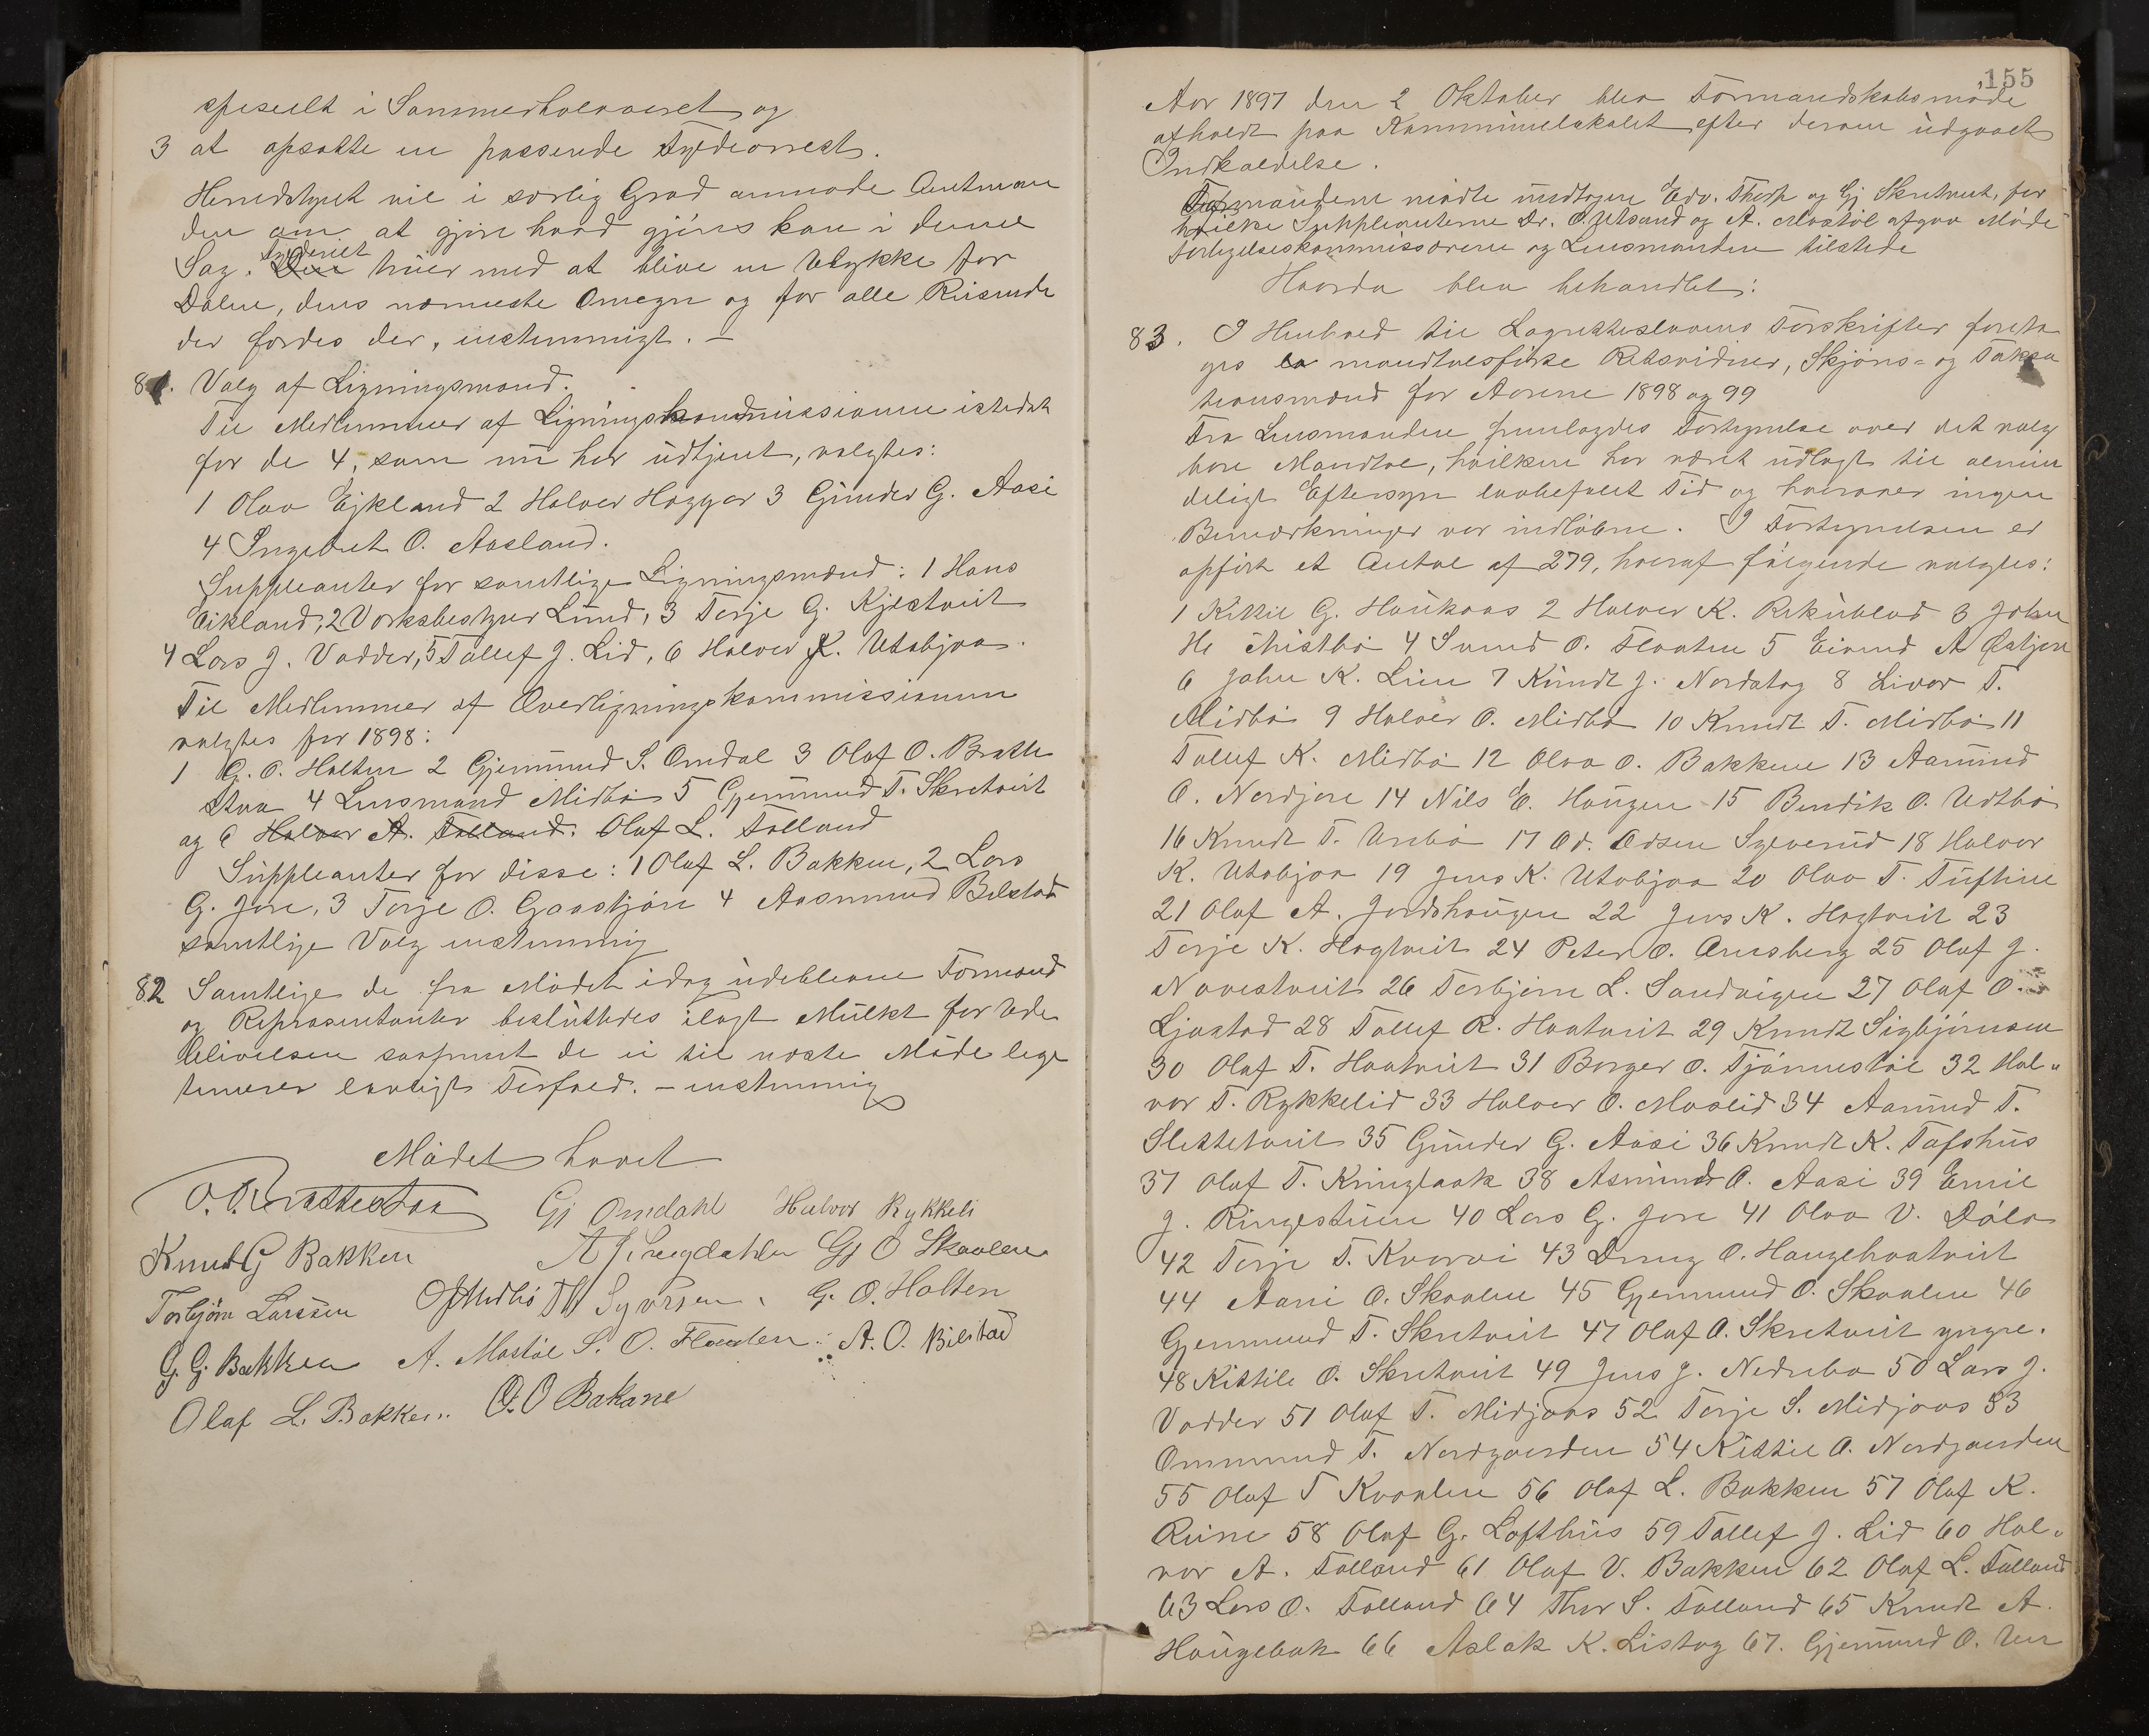 specielt i Sommerhalvaaret og
3 at opsætte en passende Fyldearrest.
Herredstyret vil i særlig Grad anmode Amtman
den om at gjøre hvad gjøres kan i denne
Sag. Fylderiet truer med at blive en Ulykke for
Dalen, dens nærmeste Omegn og for alle Reisende
der færdes der, enstemmigt. –
81. Valg af Ligningsmænd.
Til Medlemmer af Ligningskommissionen istedet
for de 4, som nu har udtjent, valgtes:
1 Olav Eikland 2 Halvor Haggar 3 Gunder G. Aasi
4 Ingebret O. Aasland.
Suppleanter for samtlige Ligningsmænd: 1 Hans
Eikland, 2 Værksbestyrer Lund, 3 Terje G. Kjiltveit
4 Lars J. Vadder, 5 Tallef J. Lid, 6 Halvor K. Utabjaa.
Til Medlemmer af Overligningskommissionen
valgtes for 1898:
1 G. O. Holten 2 Gjermund S. Omdal 3 Olaf O. Bratte
staa 4 Lensmand Midbø 5 Gjermund T. Skretveit
og 6 Halvor A. Tolland. Olaf L. Tolland
Suppleanter for disse: 1 Olaf L. Bakken, 2 Lars
G. Jore, 3 Terje O. Gaastjøn 4 Aasmund Bilstad
samtlige Valg enstemmig
82 Samtlige de fra Mødet idag udeblevne Formænd
og Repræsentanter besluttedes ilagt Mulkt for Ude
blivelsen saafremt de ei til næste Møde legi
timerer lovligt Forfald. – enstemmig
Mødet hævet
O. O. Brattestaa Gj Omdahl Halvor Rykkeli
Knud G Bakken Gj O Skaalen
Torbjørn Larssen O J Midbø Th Syvrsen. G. O. Holten
G. G. Bakken A. Mostøl S. O. Flaaten. A. O. Bilstad
Olaf L. Bakken. O. O Bakane
155
Aar 1897 den 2 Oktober blev Formandskabsmøde
afholdt paa Kommunelokalet efter derom udgaaet
Indkaldelse.
Formændene mødte undtagen Edv. Thorp og Gj Skretveit, for
hvilke Suppleanterne Dr. O. Utsund og A. Mostøl afgav Møde
Forligelseskommissærene og Lensmanden tilstede
Hvorda blev behandlet:
83. I Henhold til Lagretteslovens Forskrifter foreta
ges en mandtalsførte Retsvidner, Skjøns- og Taksa
tionsmænd for Aarene 1898 og 99
Fra Lensmanden fremlagdes Fortegnelse over det valg
bare Mandtal, hvilken har været udlagt til almin
deligt Eftersyn lovbefalet Tid og hvorover ingen
Bemærkninger var indløbne. I Fortegnelsen er
opført et Antal af 279, hvoraf følgende valgtes:
1 Kittil G. Haukaas 2 Halvor K. Rekublad 3 John
H. Mistbø 4 Svend O. Flaaten 5 Eivind A Østjore
6 John K. Lien 7 Knudt J. Nordstog 8 Livor T.
Midbø 9 Halvor O. Midbø 10 Knudt T. Midbø 11
Tallef K. Midbø 12 Olav O. Bakkene 13 Aamund
O. Nordjore 14 Nils E. Haugen 15 Bendik O. Udtbø
16 Knudt T. Urebø 17 Od. Odsen Syverud 18 Halvor
K. Utabjaa 19 Jens K. Utabjaa 20 Olav T. Tuftine
21 Olaf A. Jordshaugen 22 Jens K. Hogtveit 23
Terje K. Hogtveit 24 Peter O. Arnsberg 25 Olaf J.
Navestveit 26 Torbjørn L. Sandvigen 27 Olaf O.
Ljostad 28 Tallef R. Haatveit 29 Knudt Sigbjørnsen
30 Olaf T. Haatveit 31 Børger O. Tjønnestøl 32 Hal„
vor T. Rykkelid 33 Halvor O. Moslid 34 Aamund T.
Slettetveit 35 Gunder G. Aasi 36 Knudt K. Tafshus
37 Olaf T. Kringlaak 38 Asmund O. Aasi 39 Emil
J. Ringestuen 40 Lars G. Jore 41 Olav V. Døla
42 Terje T. Kvaavi 43 Dreng O. Haugehaatveit
44 Aani O. Skaalen 45 Gjermund O. Skaalen 46
Gjermund T. Skretveit 47 Olaf O. Skretveit yngre.
48 Kittil O. Skretveit 49 Jens J. Nedrebø 50 Lars J.
Vadder 51 Olaf T. Midjaas 52 Terje S. Midjaas 53
Ommund T. Nordgaarden 54 Kittil O. Nordgaarden
55 Olaf T Kvaalen 56 Olaf L. Bakken 57 Olaf K.
Ruine 58 Olaf G. Lofthus 59 Tallef J. Lid 60 Hal„
vor A. Tolland 61 Olaf V. Bakken 62 Olaf L. Tolland
63 Lars O. Tolland 64 Thor S. Tolland 65 Knudt A.
Haugebak 66 Aslak K. Listog 67. Gjermund O. Ver